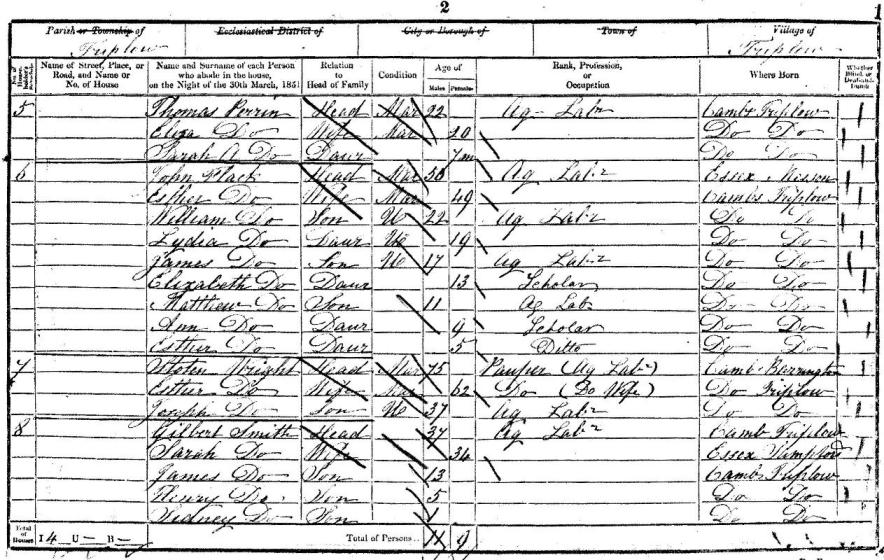 2
1
Parish or Township of Ecclesiastical District of City or Borough of Town of Village of
Triplow Triplow
Name of Street, Place, or Road, and Name or No. of House Name and Surname of each Person who abode in the house, on the Night of the 30th March, 1851 Relation to Head of Family Condition Age of Males Females Rank, Profession, or Occupation Where Born Whether Blind, or Deaf-and-Dumb
5 Thomas Perrin Head Mar 22 Ag Labr Cambs Triplow
Eliza Do Wife Mar 20 Do Do
Sarah A Do Daur 7m Do Do
6 John Head Mar 50 Ag Labr Essex
Esther Do Wife Mar 49 Cambs Triplow
William Do Son U 22 Ag Labr Do Do
Lydia Do Daur U 19 Do Do
James Do Son U 17 Ag Labr Do Do
Elizabeth Do Daur 13 Scholar Do Do
Matthew Do Son 11 Ag Lab Do Do
Ann Do Daur 9 Scholar Do Do
Esther Do Daur 5 Ditto Do Do
7 Wright Head Mar 75 Pauper (Ag Labr) Camb Barrington
Esther Do Wife Mar 62 Do (Do Wife) Do Triplow
Joseph Do Son U 37 Ag Labr Do Do
8 Gilbert Smith Head 37 Ag Labr Camb Triplow
Sarah Do Wife 34 Essex
James Do Son 13 Cambs Triplow
Henry Do Son 5 Do Do
Sidney Do Son 1 Do Do
Total of Houses I 4 U — B — Total of Persons 11 9